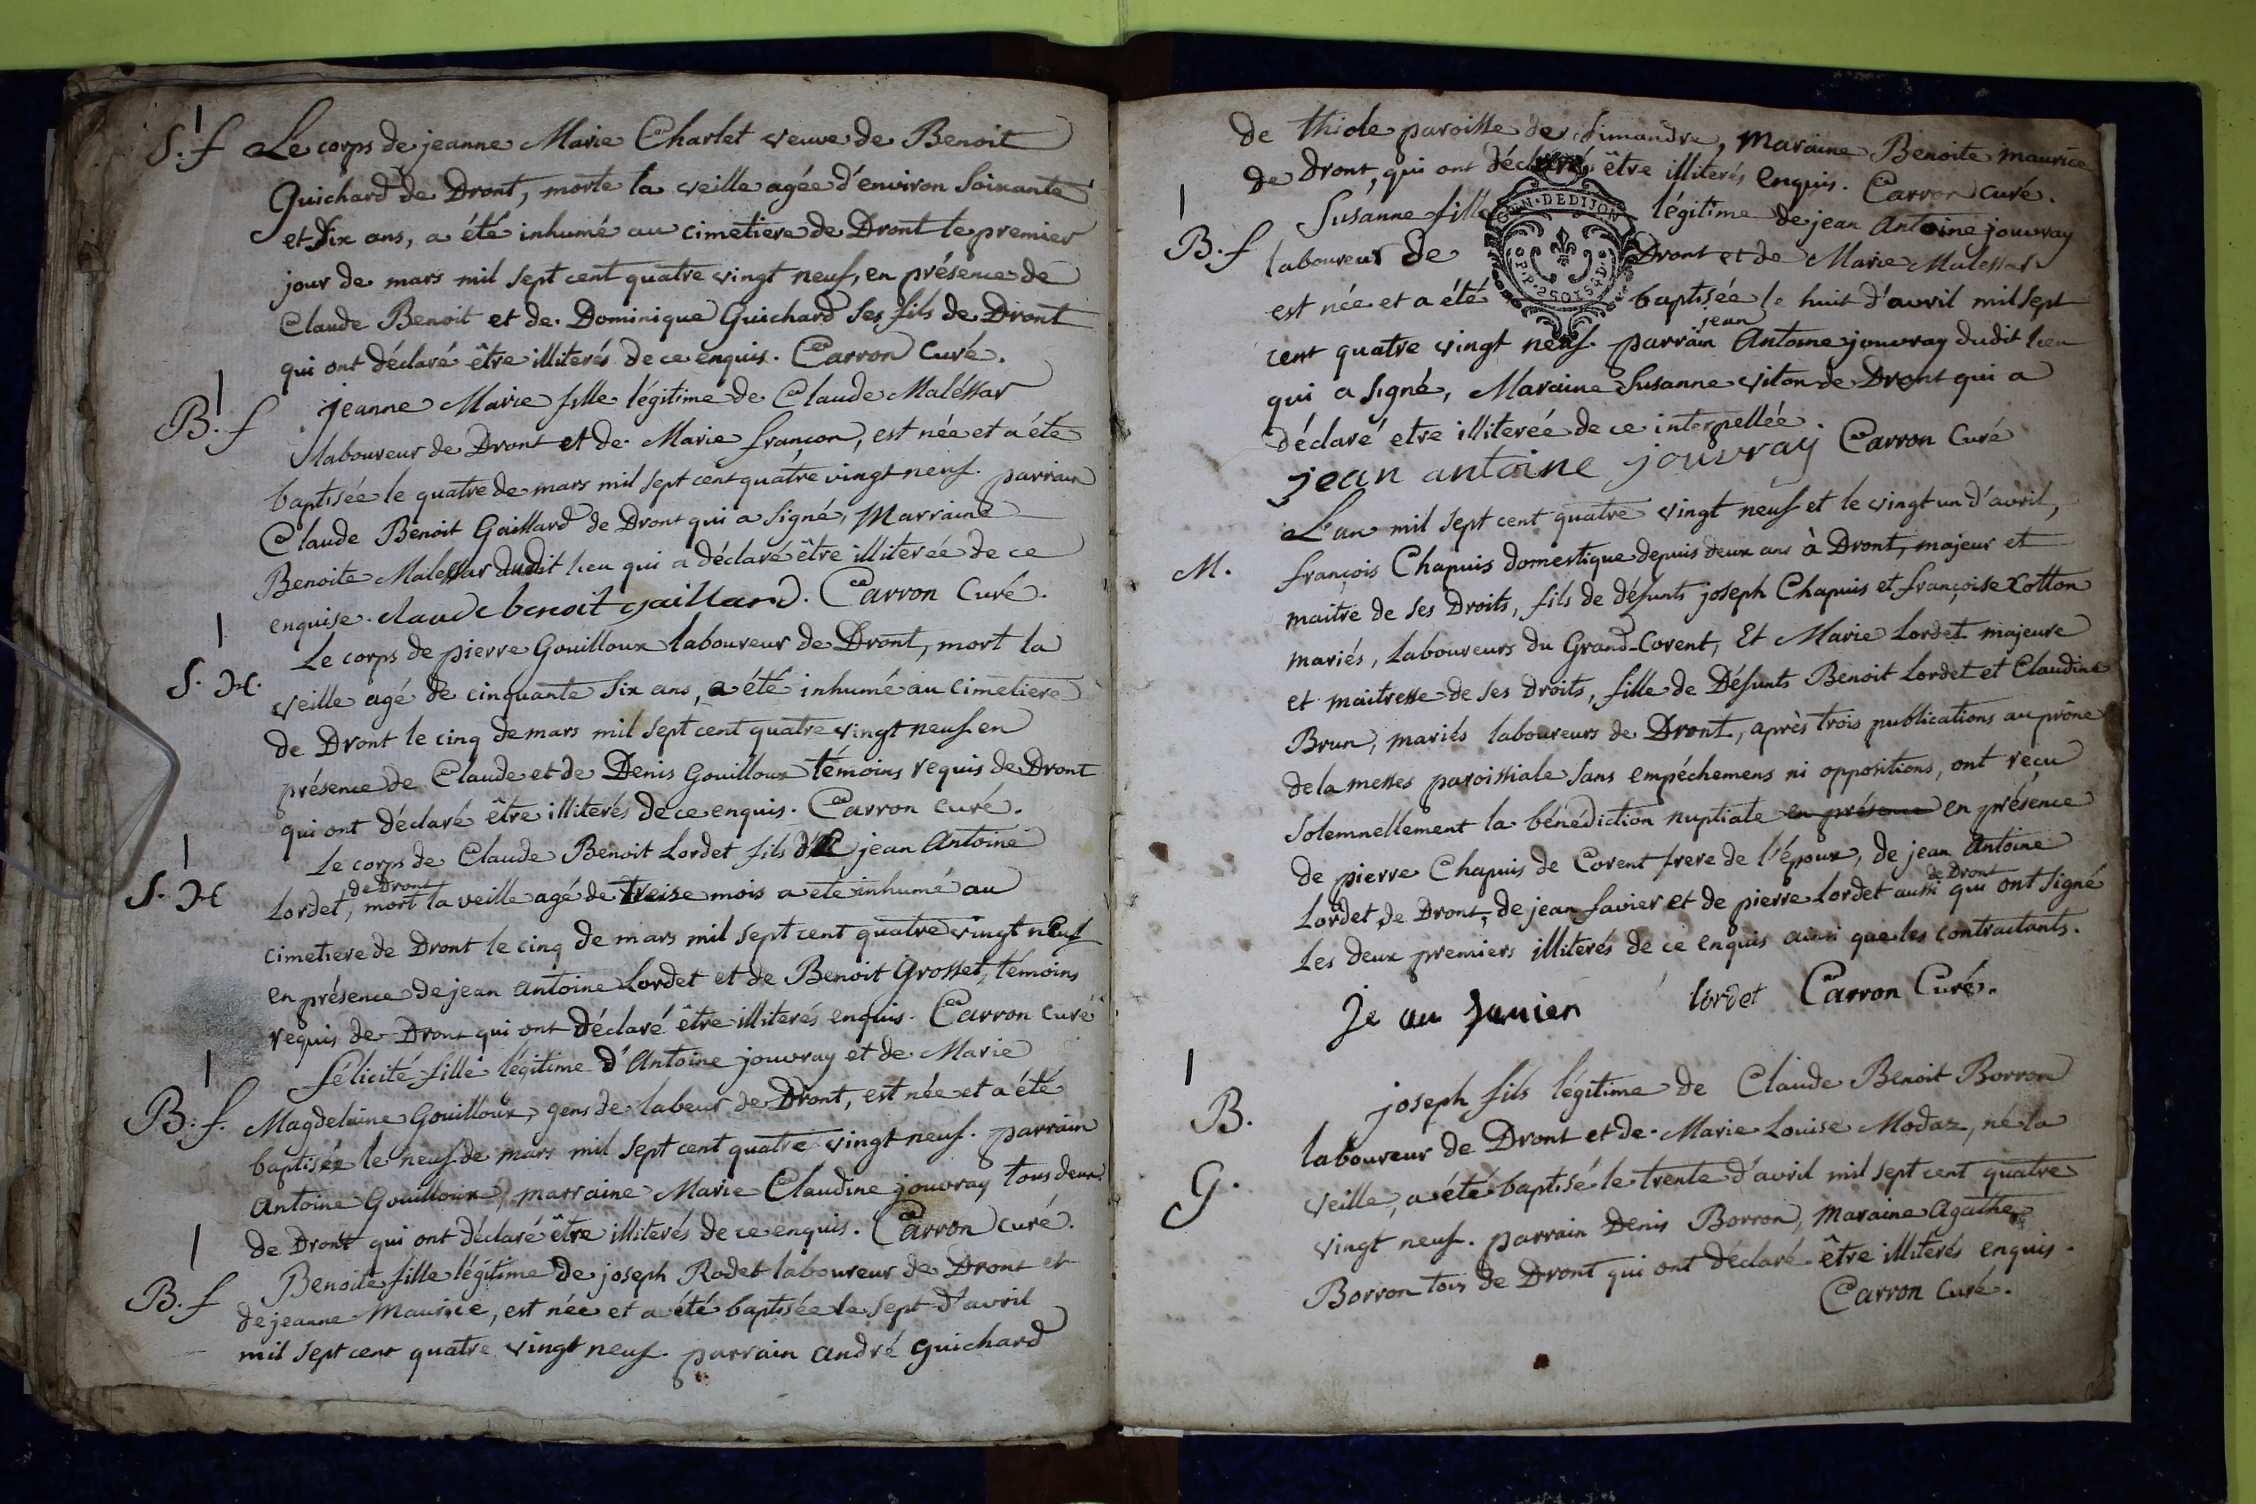 1
S. f Le corps de jeanne Marie Charlet veuve de Benoit
Guichard de Dront, morte la veille agée d'environ soixante
et dix ans, a été inhumé au cimetiere de Dront le premier
jour de mars mil sept cent quatre vingt neuf, en présence de
Claude Benoit et de Dominique Guichard ses fils de Dront
qui ont déclaré être illiterés de ce enquis. Carron Curé.
1
B. f jeanne Marie fille légitime de Claude Maléssar
laboureur de Dront et de Marie françon, est née et a été
baptisée le quatre de mars mil sept cent quatre vingt neuf. parrain
Claude Benoit Gaillard de Dront qui a signé, Marraine
Benoite Malessar dudit lieu qui a déclaré être illiterée de ce
enquise. claude benoit gaillard. Carron Curé.
1
S. H. Le corps de pierre Gouilloux laboureur de Dront, mort la
veille agé de cinquante six ans, a été inhumé au Cimetiere
de Dront le cinq de mars mil sept cent quatre vingt neuf en
présence de Claude et de Denis Gouilloux témoins requis de Dront
qui ont déclaré être illiterés de ce enquis. Carron curé.
1
Le corps de Claude Benoit Lordet fils de jean Antoine
de Dront
S. H Lordet, mort la veille agé de treise mois a eté inhumé au
cimetiere de Dront le cinq de mars mil sept cent quatre vingt neuf
en présence de jean Antoine Lordet et de Benoit Grosset, témoins
requis de Dront qui ont déclaré être illiterés enquis. Carron Curé
1
félicité fille légitime d'Antoine jouvray et de Marie
B. f. Magdelaine Gouilloux, gens de labeur de Dront, est née et a été
baptisée le neuf de mars mil sept cent quatre vingt neuf. parrain
Antoine Gouilloux, marraine Marie Claudine jouvray tous deux
de Dront qui ont déclaré être illiterés de ce enquis. Carron curé.
1
B. f Benoite fille légitime de joseph Rodet laboureur de Dront et
de jeanne Maurice, est née et a été baptisée le sept d'avril
mil sept cent quatre vingt neuf. parrain andré guichard
de thiole paroisse de simandre, Maraine Benoite maurice
de Dront, qui ont déclaré être illiterés enquis. Carron curé.
1
GEN. DE DIJON
Susanne fille légitime de jean Antoine jouvray
B. f laboureur de Dront et de Marie Malessar
est née et a été baptisée le huit d'avril mil sept
jean
cent quatre vingt neuf. parrain Antoine jouvray dudit lieu
qui a signé, Maraine Susanne viton de Dront qui a
déclaré etre illiterée de ce interpellée.
jean antoine jouvray Carron Curé
L'an mil sept cent quatre vingt neuf et le vingt un d'avril,
M. françois Chapuis domestique depuis deux ans à Dront, majeur et
maitre de ses Droits, fils de défunts joseph Chapuis et françoise Cotton
mariés, Laboureurs du Grand-Corent, Et Marie Lordet majeure
et maitresse de ses droits, fille de Défunts Benoit Lordet et Claudine
Brun, mariés laboureurs de Dront, après trois publications au prône
de la messes paroissiale sans empéchemens ni oppositions, ont reçu
solemnellement la bénédiction nuptiale en présence en présence
de pierre Chapuis de Corent frere de l'époux, de jean Antoine
de Dront
Lordet de Dront, de jean favier et de pierre Lordet aussi qui ont signé
Les deux premiers illiterés de ce enquis ainsi que les contractants.
Je an favier lordet Carron Curé.
1
B. joseph fils légitime de Claude Benoit Borron
laboureur de Dront et de Marie Louise Modaz, né la
G. veille, a été baptisé le trente d'avril mil sept cent quatre
vingt neuf. parrain Denis Borron, Maraine Agathe
Borron tous de Dront qui ont déclaré être illiterés enquis.
Carron Curé.